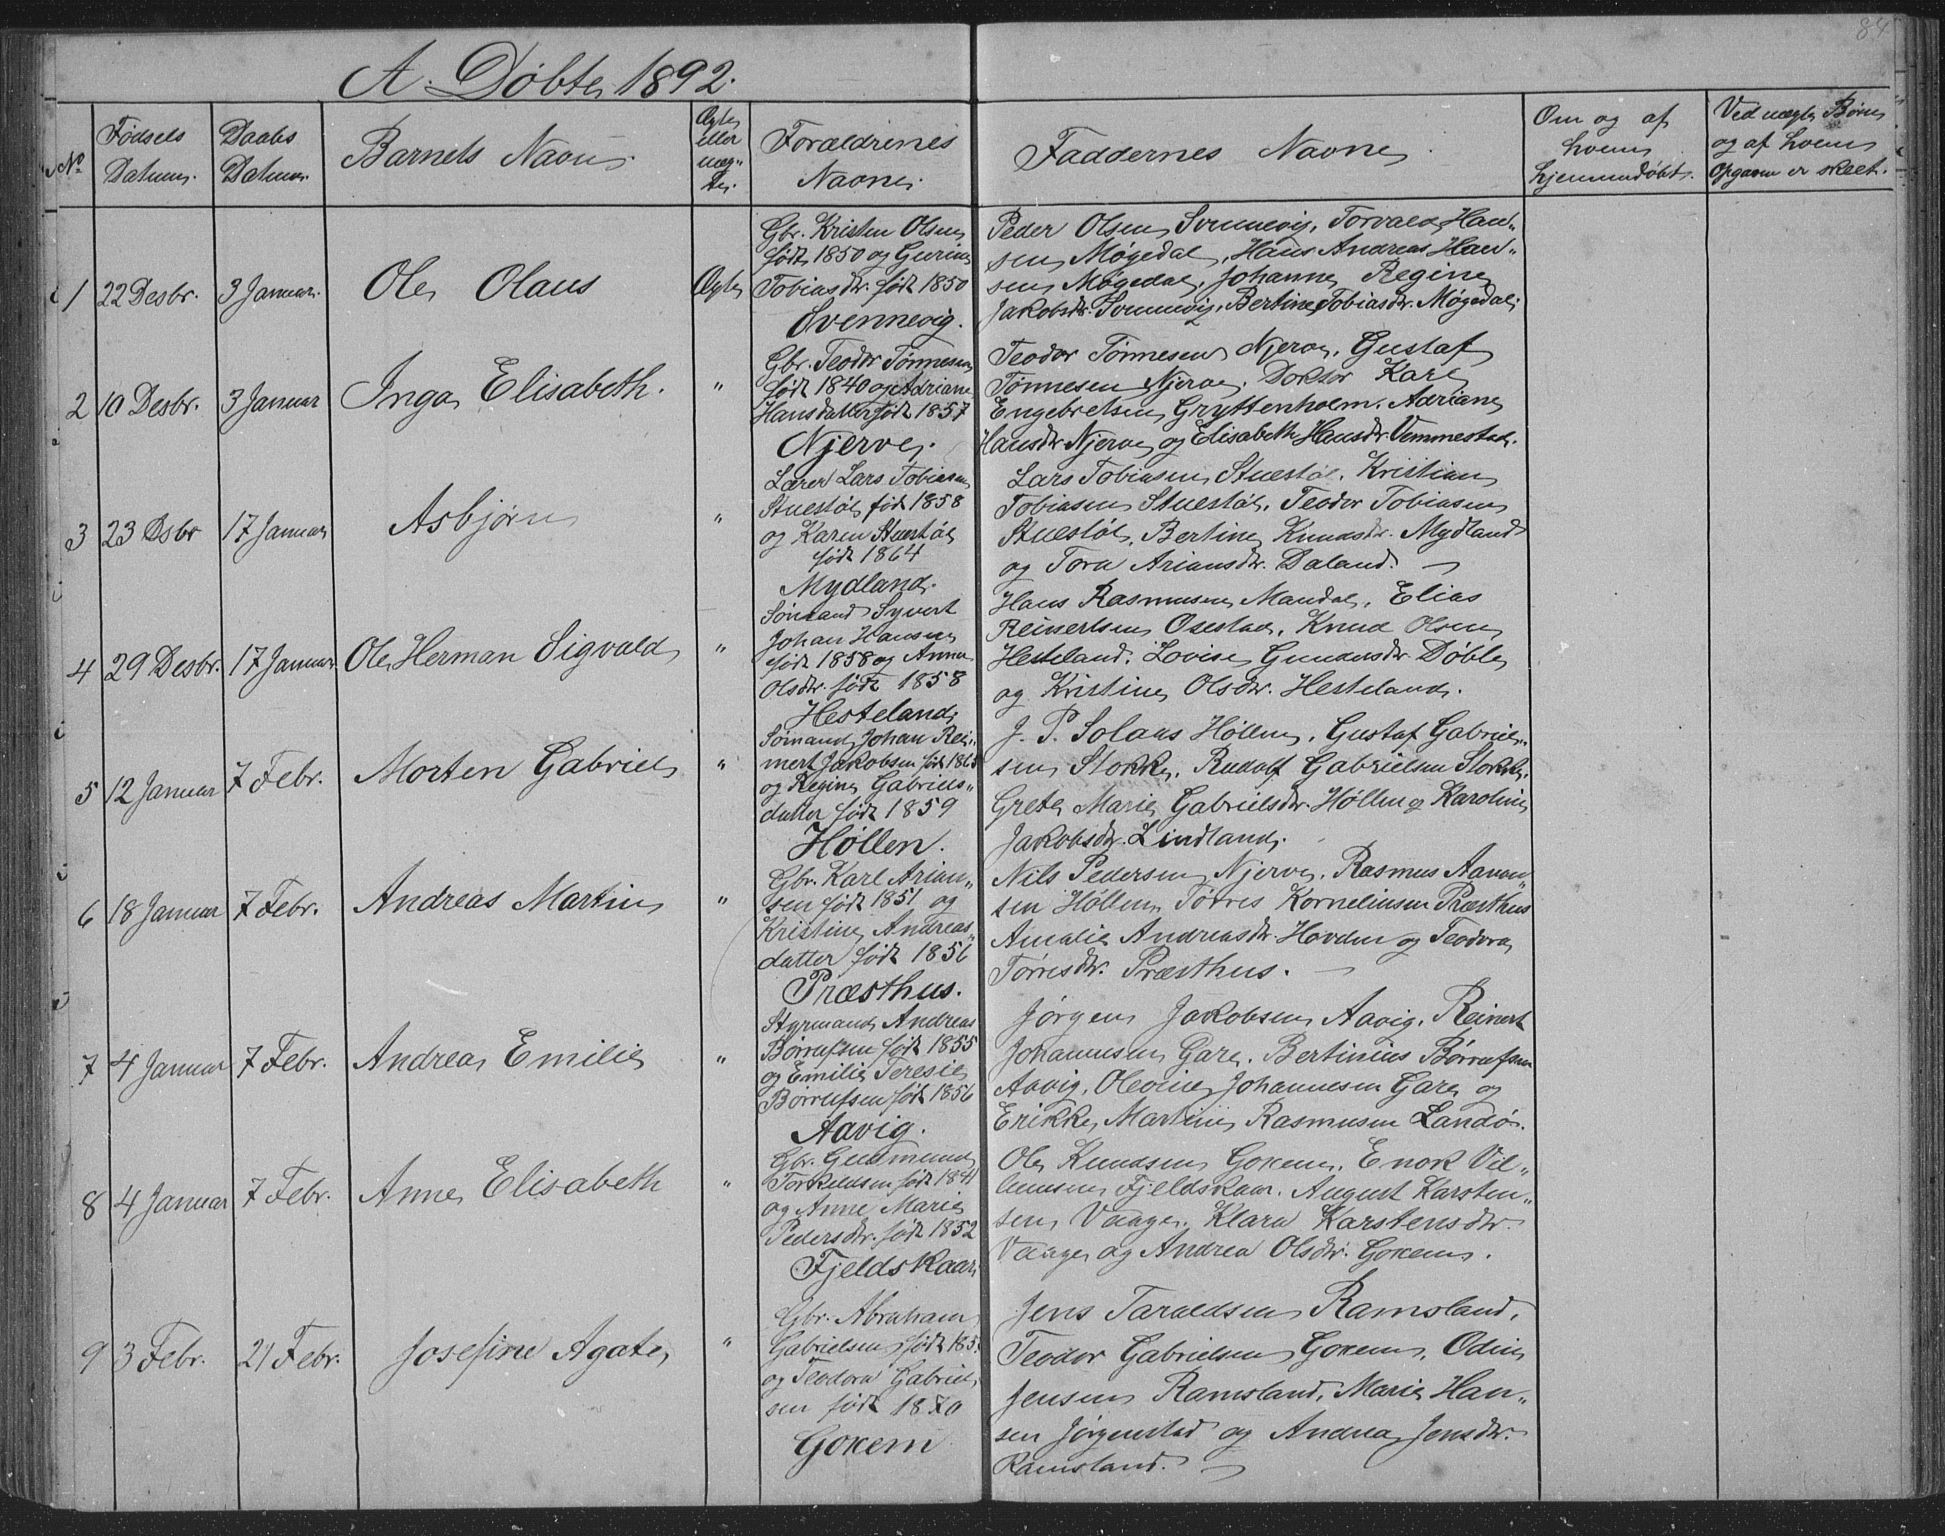 84
A. Døbte 1892.
No.
Fødsels Datum.
Daabs Datum.
Barnets Navn.
Ægte eller uæg- te.
Forældrenes Navne.
Faddernes Navne.
Om og af hvem hjemmedøbt.
Ved uægte Børn og af hvem Opgaven er skeet.
1 22 Desbr. 3 Januar. Ole Olaus Ægte
Gbr. Kristen Olsen
født 1850 og Gurine
Tobiasdtr. født 1850
Svennevig.
Peder Olsen Svennevig, Torvald Han-
sen Møgedal, Hans Andreas Han-
sen Møgedal, Johanne Regine
Jakobsdtr. Svennevig, Bertine Tobiasdtr. Møgedal.
2 10 Desbr. 3 Januar Inga Elisabeth. "
Gbr. Teodor Tønnesen
født 1840 og Adriane
Hansdatter født 1857
Njerve.
Teodor Tønnesen Njerve, Gustaf
Tønnesen Njerve, Doktor Karl
Engebretsen Gryttenholm, Adriane
Hansdtr Njerve og Elisabeth Hansdtr. Vemmestad.
3 23 Dsbr 17 Januar Asbjørn "
Lærer Lars Tobiasen
Stuestøl født 1858
og Karen Stuestøl
født 1864
Mydland.
Lars Tobiasen Stuestøl, Kristian
Tobiasen Stuestøl, Teodor Tobiasen
Stuestøl, Bertine Knudsdr. Mydland
og Tora Ariansdtr. Daland.
4 29 Desbr. 17 Januar Ole Herman Sigvald "
Sømand Syvert
Johan Hansen
født 1858 og Anna
Olsdtr. født 1858
Hesteland.
Hans Rasmussen Mandal, Elias
Reinertsen Osestad, Knud Olsen
Hesteland, Lovise Gundersdtr. Døble
og Kristine Olsdtr. Hesteland.
5 12 Januar 7 Febr. Morten Gabriel "
Sømand Johan Rei-
nert Jakobsen født 1863
og Regine Gabriels-
datter født 1859
Høllen.
J. P. Solaas Høllen, Gustaf Gabriel-
sen Stokke, Rudolf Gabrielsen Stokke,
Grete Marie Gabrielsdtr. Høllen og Karoline
Jakobsdtr. Lindland.
6 18 Januar 7 Febr. Andreas Martin "
Gbr. Karl Arian-
sen født 1851 og
Kristine Andreas-
datter født 1856
Præsthus.
Nils Pedersen Njerve, Rasmus Aanon-
sen Høllen, Tørres Kornelius­en Præsthus
Amalie Andreasdtr. Hovden og Teodora
Tørresdtr. Præsthus.
7 4 Januar 7 Febr. Andrea Emilie "
Styrmand Andreas
Børrufsen født 1855
og Emilie Teresie
Børrufsen født 1856
Aavig.
Jørgen Jakobsen Aavig, Reinert
Johannesen Gare, Bertinius Børrufsen
Aavig, Olevine Johannesen Gare og
Erikke Martine Rasmusen Landø.
8 4 Januar 7 Febr. Anne Elisabeth "
Gbr. Gudmund
Torkildsen født 1841
og Anne Marie
Pedersdtr. født 1852
Fjeldskaar
Ole Knudsen Gokem, Enok Vil-
lumsen Fjeldskaar, August Karsten-
sen Vaage, Klara Karstensdtr.
Vaage og Andrea Olsdtr. Gokem.
9 3 Febr. 21 Febr. Josefine Agate "
Gbr. Abraham
Gabrielsen født 185
og Teodora Gabriel-
sen født 1870
Gokem
Jens Taraldsen Ramsland,
Teodor Gabrielsen Gokem, Odin
Jensen Ramsland, Marie Han-
sen Jørgenstad og Andrea Jensdtr.
Ramsland.